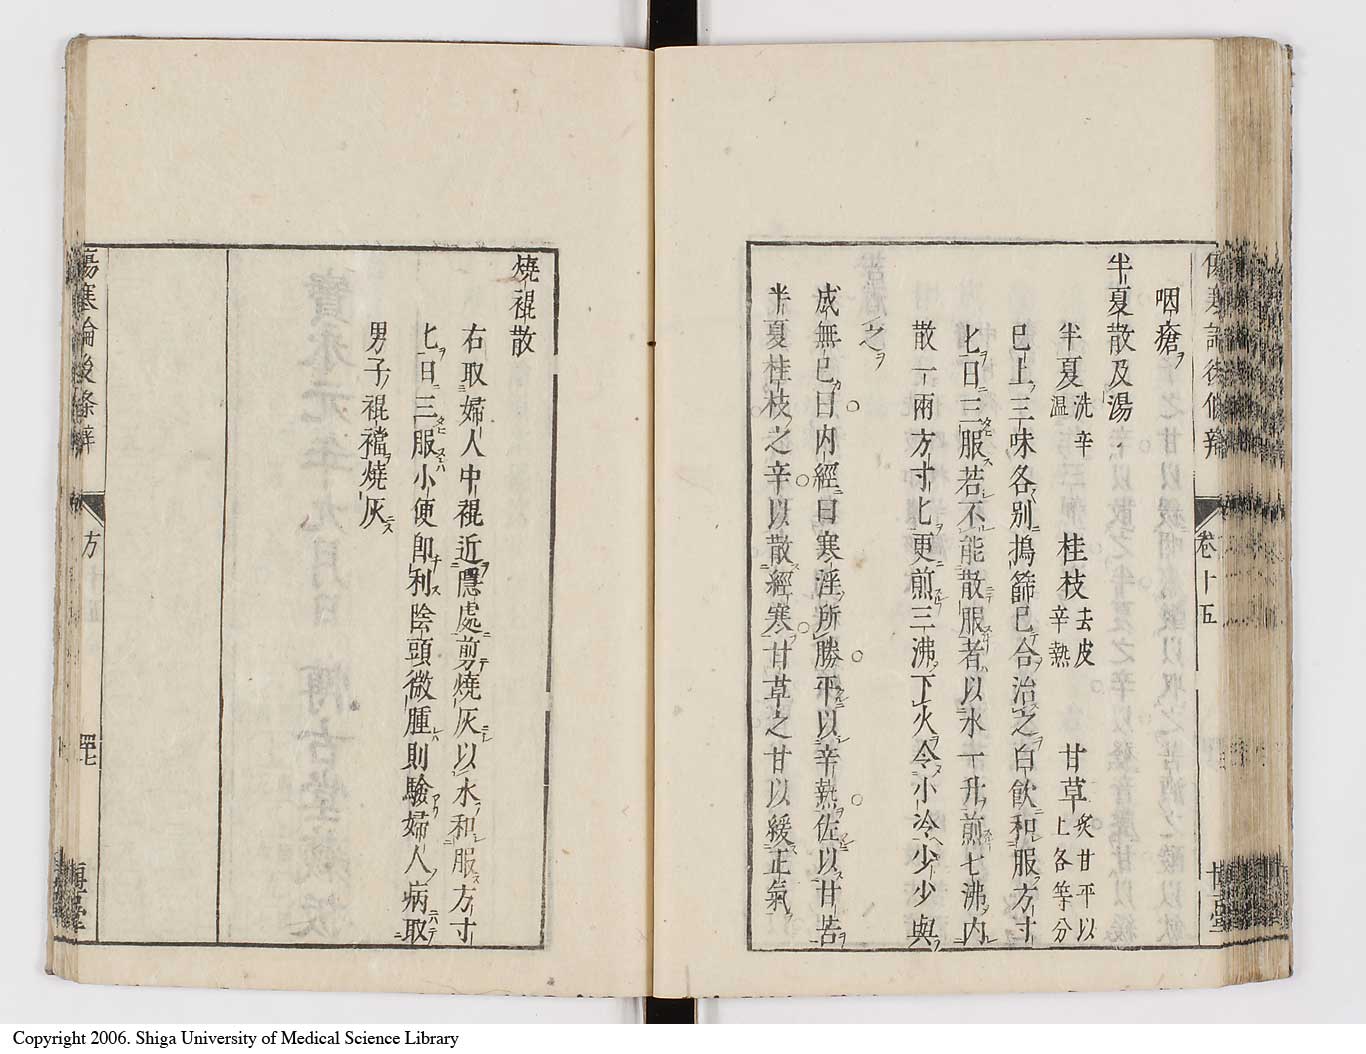 傷寒論後條辨
卷十五
咽瘡ヲ
半夏散及湯
半夏洗辛温 桂枝去皮辛熱 甘草炙甘平以上各等分
已上三味各別搗篩已合治之白飲和服方寸
匕日三服若不能散服者以水一升煎七沸内
散一兩方寸匕更煎三沸下火令小冷少少與
之
成無已曰内經曰寒淫所勝平以辛熱佐以甘苦
半夏桂枝之辛以散經寒甘草之甘以緩正氣
燒裩散
右取婦人中裩近隱處剪燒灰以水和服方寸
匕日三服小便卽利陰頭微腫則驗婦人病取
男子裩襠燒灰
傷寒論後條辨
方
四七
博古堂
Copyright 2006. Shiga University of Medical Science Library